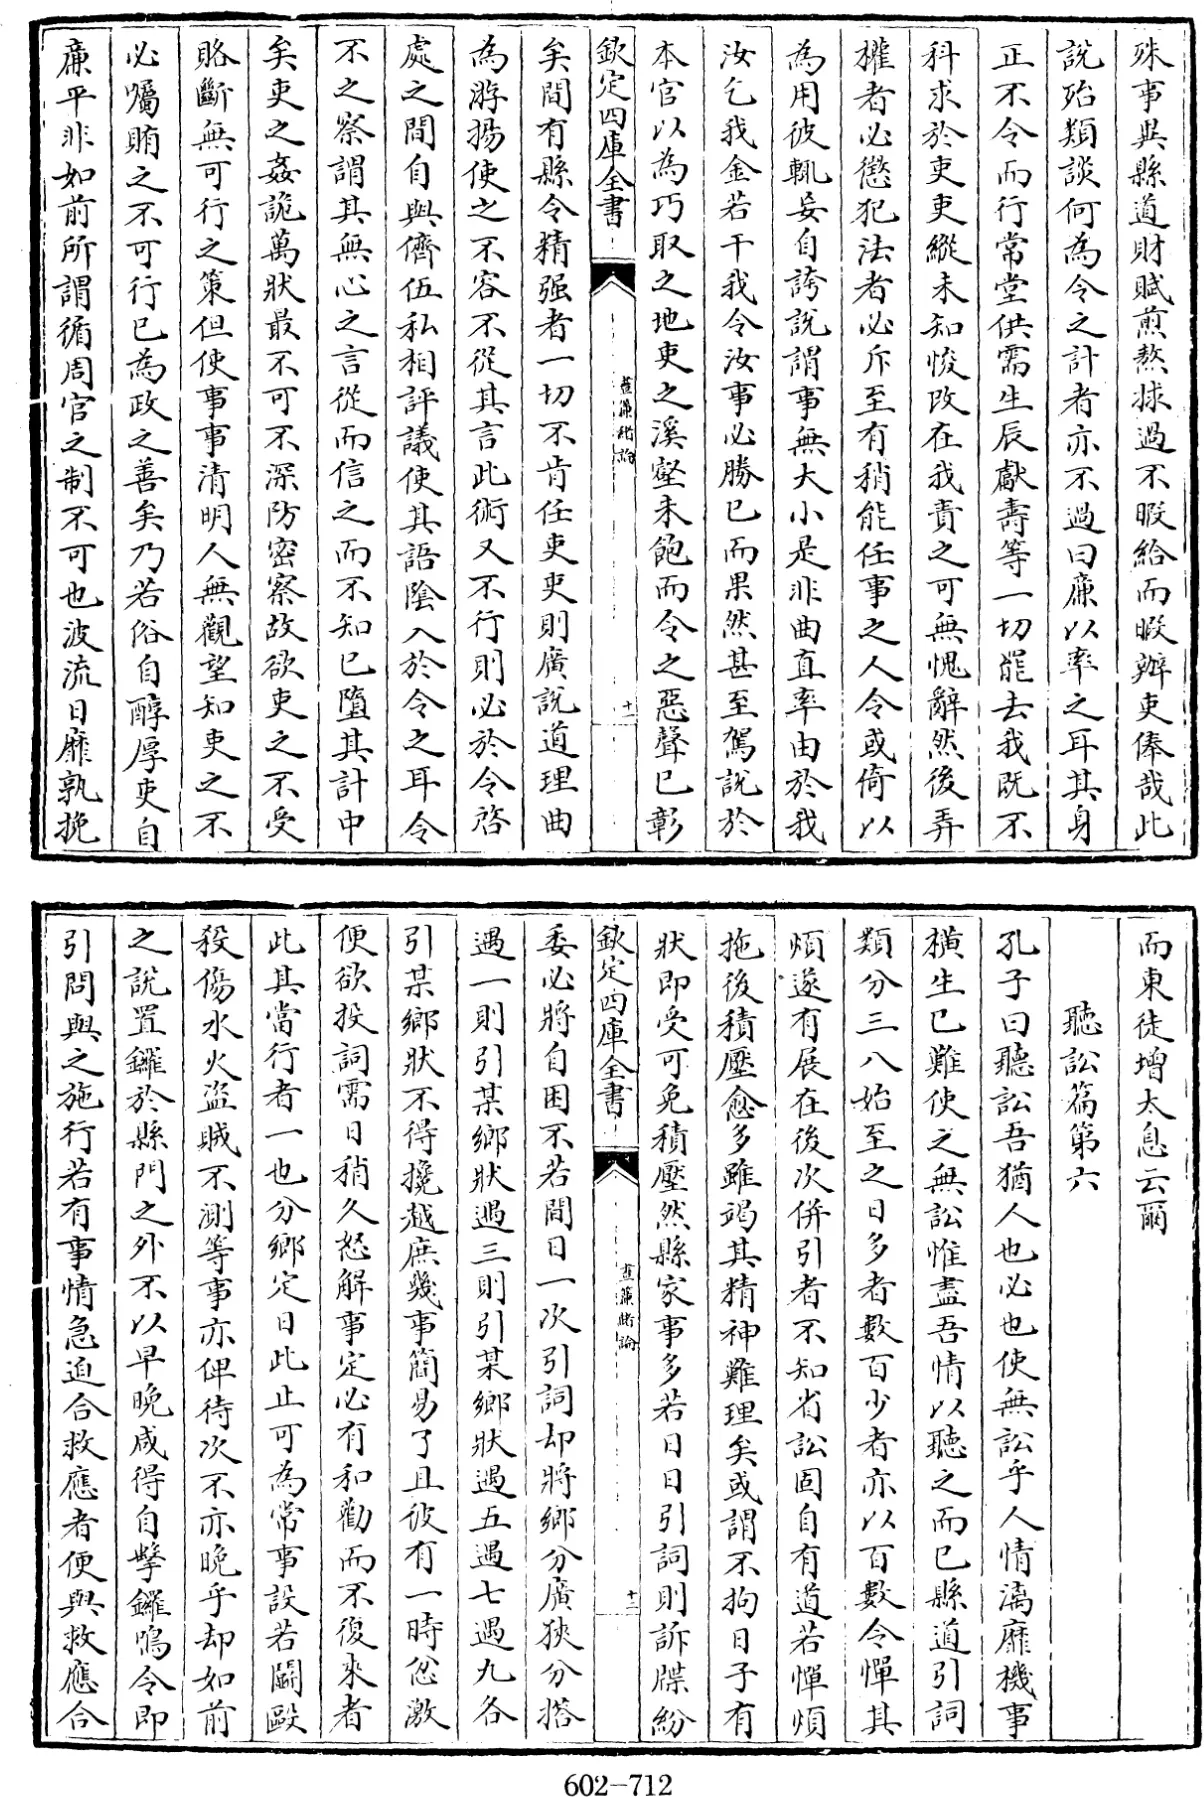 殊事與縣道財賦煎熬捄過不暇給而暇辦吏俸哉此
說殆類談何為令之計者亦不過曰廉以率之耳其身
正不令而行常堂供需生辰獻壽等一切罷去我既不
科求於吏吏縱未知悛改在我責之可無愧辭然後弄
權者必懲犯法者必斥至有稍能任事之人令或倚以
為用彼輒妄自誇說謂事無大小是非曲直率由於我
汝乞我金若干我令汝事必勝已而果然甚至駕說於
本官以為巧取之地吏之溪壑未飽而令之惡聲已彰
欽定四庫全書
晝簾緒論
十一
矣間有縣令精强者一切不肯任吏吏則廣說道理曲
為游揚使之不容不從其言此術又不行則必於令啓
處之間自與儕伍私相評議使其語陰入於令之耳令
不之察謂其無心之言從而信之而不知已墮其計中
矣吏之姦詭萬狀最不可不深防密察故欲吏之不受
賂斷無可行之策但使事事清明人無觀望知吏之不
必囑賄之不可行已為政之善矣乃若俗自醇厚吏自
廉平非如前所謂循周官之制不可也波流日靡孰挽
而東徒增太息云爾
聽訟篇第六
孔子曰聽訟吾猶人也必也使無訟乎人情漓靡機事
横生已難使之無訟惟盡吾情以聽之而已縣道引詞
類分三八始至之日多者數百少者亦以百數令憚其
煩遂有展在後次併引者不知省訟固自有道若憚煩
拖後積壓愈多雖竭其精神難理矣或謂不拘日子有
狀即受可免積壓然縣家事多若日日引詞則訴牒紛
欽定四庫全書
晝簾緒論
十二
委必將自困不若間日一次引詞却將鄉分廣狹分搭
遇一則引某鄉狀遇三則引某鄉狀遇五遇七遇九各
引某鄉狀不得攙越庶幾事簡易了且彼有一時忿激
便欲投詞需日稍久怒解事定必有和勸而不復來者
此其當行者一也分鄉定日此止可為常事設若鬭毆
殺傷水火盜賊不測等事亦俾待次不亦晚乎却如前
之說置鑼於縣門之外不以早晚咸得自擊鑼鳴令即
引問與之施行若有事情急迫合救應者便與救應合
602-712